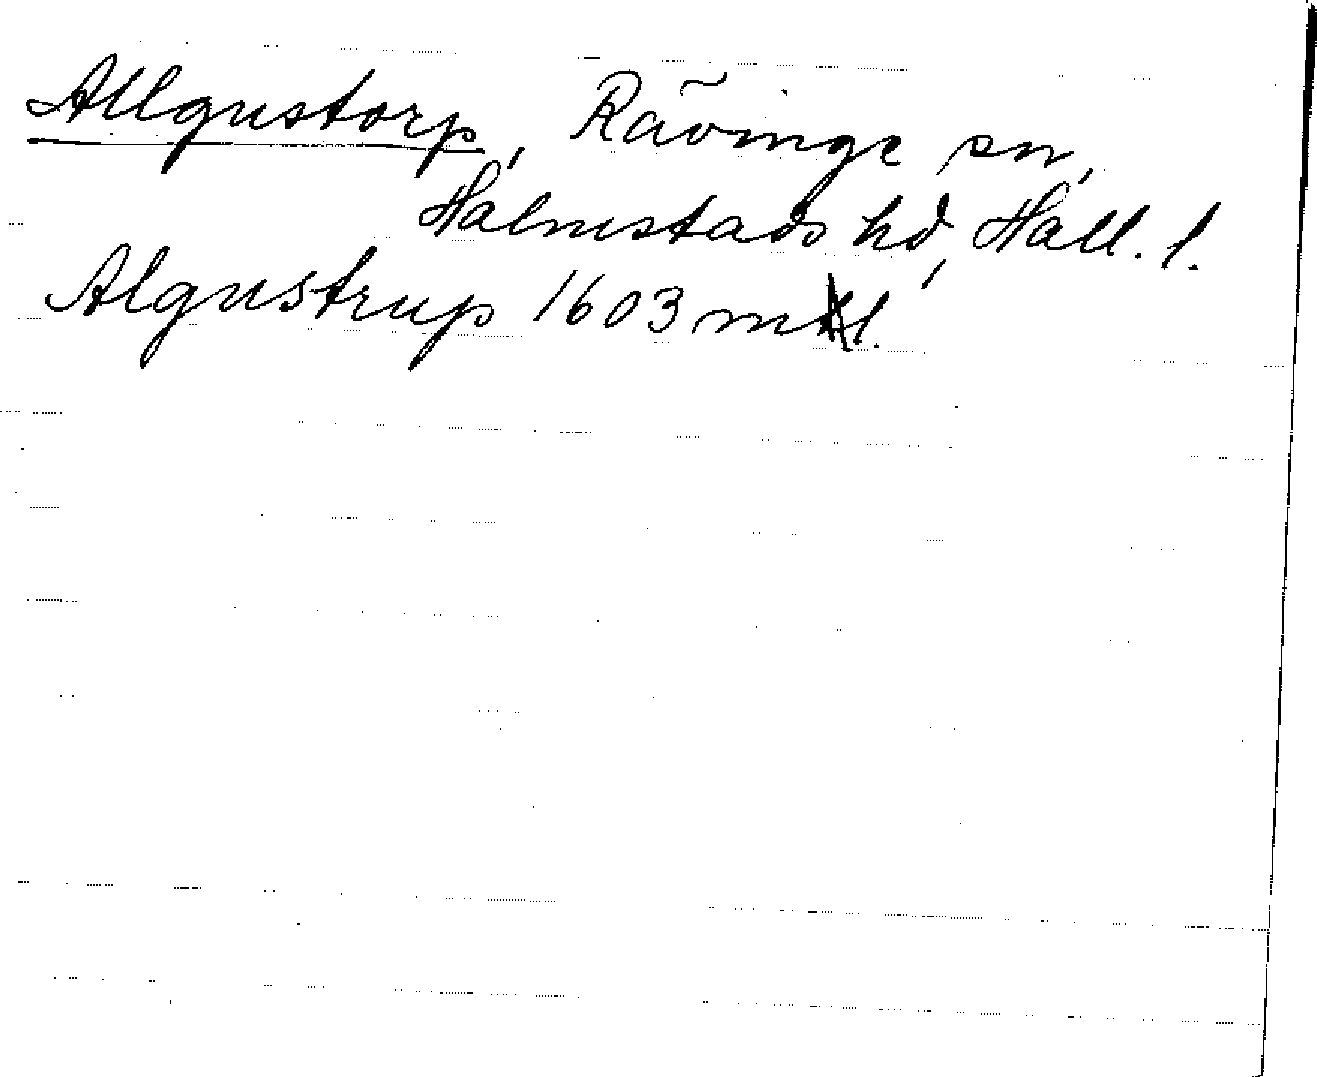 Allgustorp, Rävinge sn,
Halmstads hd, Hall. l.
Algustrup 1603 mtl.